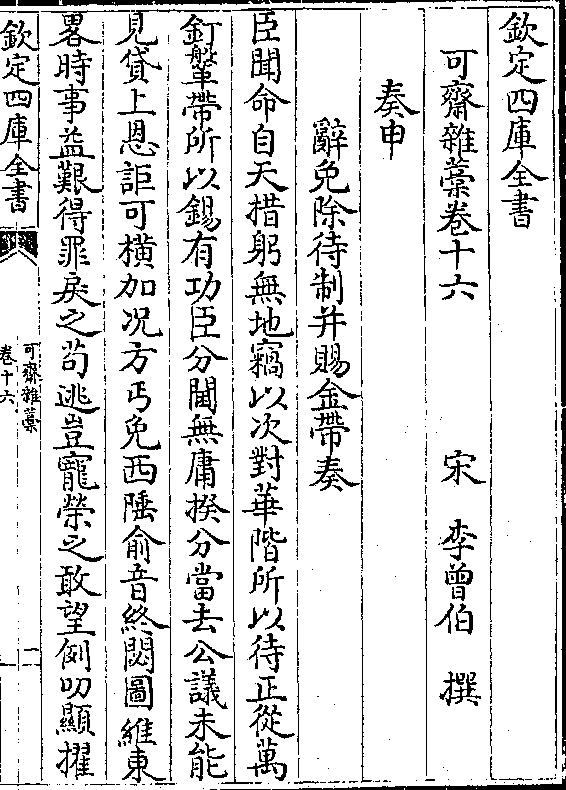 欽定四庫全書
可齋雜藁卷十六　　宋　李曾伯　撰
奏申
辭免除待制并賜金帶奏
臣聞命自天措躬無地竊以次對華階所以待正從萬
釘鞶帶所以錫有功臣分閫無庸揆分當去公議未能
見貸上恩詎可橫加况方丐免西陲俞音終閟圖維東
畧時事益艱得罪戾之苟逃豈寵榮之敢望例叨顯擢
欽定四庫全書
可齋雜藁
卷十六
一